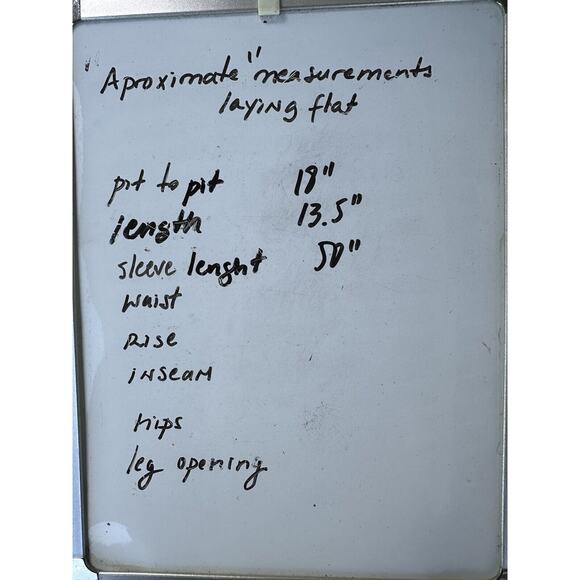 "Aproximate" measurements
laying flat
pit to pit 18"
length 13.5"
sleeve lenght 50"
waist
Rise
inseam
hips
leg opening